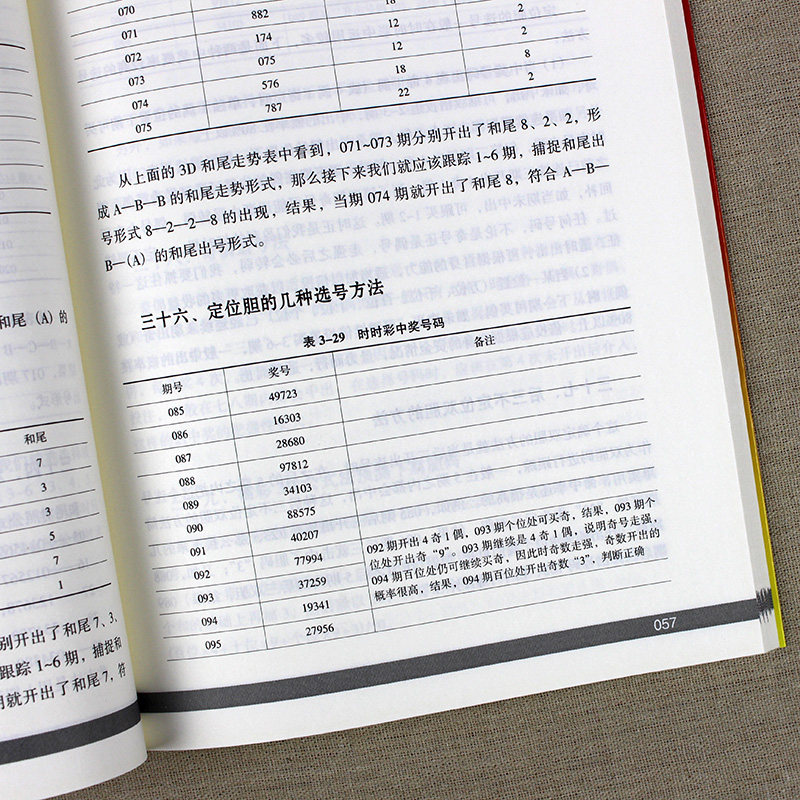 和尾（A）的
和尾
7
3
3
5
7
1
别开出了和尾 7、3、
跟踪 1~6 期，捕捉和
期就开出了和尾 7，符
070
071 882 18
072 174 12 2
073 075 12 2
074 576 18 8
075 787 22 2
从上面的 3D 和尾走势表中看到，071~073 期分别开出了和尾 8、2、2，形
成 A—B—B 的和尾走势形式，那么接下来我们就应该跟踪 1~6 期，捕捉和尾出
号形式 8—2—2—8 的出现，结果，当期 074 期就开出了和尾 8，符合 A—B—
B—（A）的和尾出号形式。
三十六、定位胆的几种选号方法
表 3-29 时时彩中奖号码
期号 奖号 备注
085 49723
086 16303
087 28680
088 97812
089 34103
090 88575
091 40207
092 77994
093 37259
094 19341
095 27956
092 期开出 4 奇 1 偶，093 期个位处可买奇，结果，093 期个
位处开出奇“9”。093 期继续是 4 奇 1 偶，说明奇号走强，
094 期百位处仍可继续买奇，因此时奇数走强，奇数开出的
概率很高，结果，094 期百位处开出奇数“3”，判断正确
057